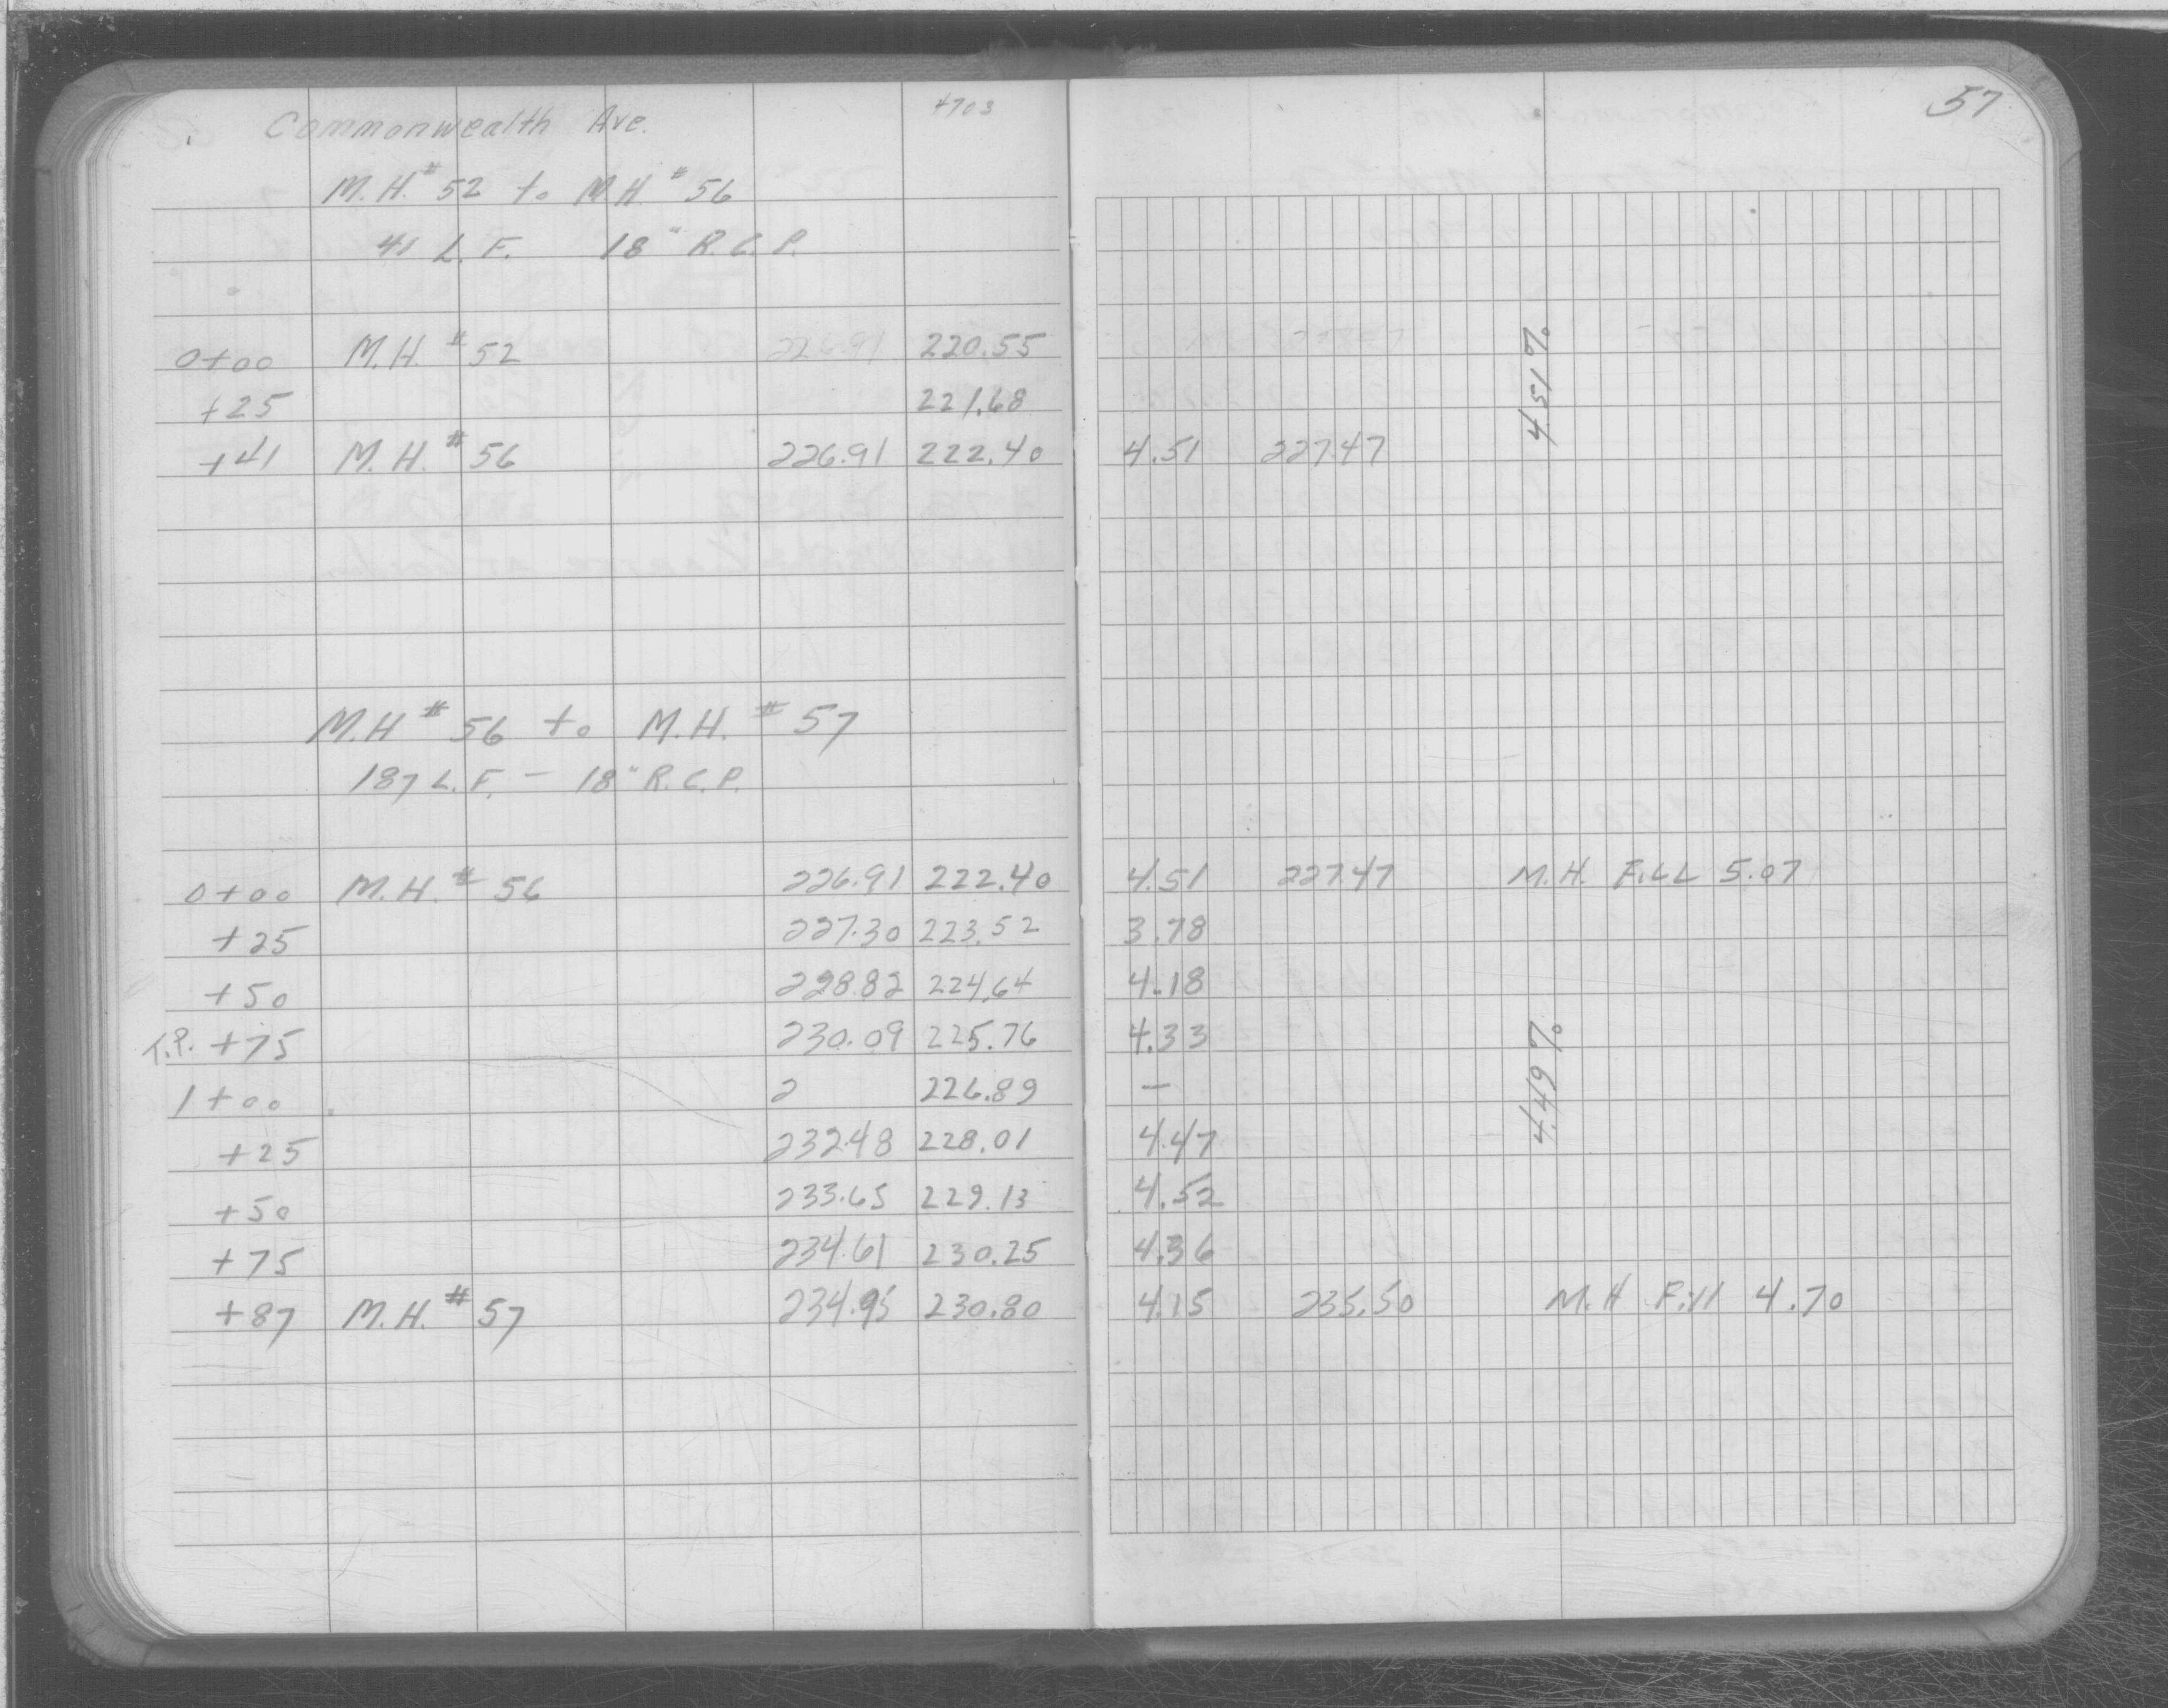 Commonwealth Ave. 4703 57
M.H.#52 to M.H.#56
41 L.F. 18" R.C.P.
0+00 M.H.#52 226.91 220.55
+25 221.68
+41 M.H.#56 226.91 222.40 4.51 227.47
4.51%
M.H#56 to M.H.#57
187 L.F. - 18" R.C.P.
0+00 M.H.#56 226.91 222.40 4.51 227.47 M.H. FiLL 5.07
+25 227.30 223.52 3.78
+50 228.82 224.64 4.18
T.P. +75 230.09 225.76 4.33
1+00 2 226.89 —
4.49%
+25 232.48 228.01 4.47
+50 233.65 229.13 4.52
+75 234.61 230.25 4.36
+87 M.H.#57 234.95 230.80 4.15 235.50 M.H Fill 4.70